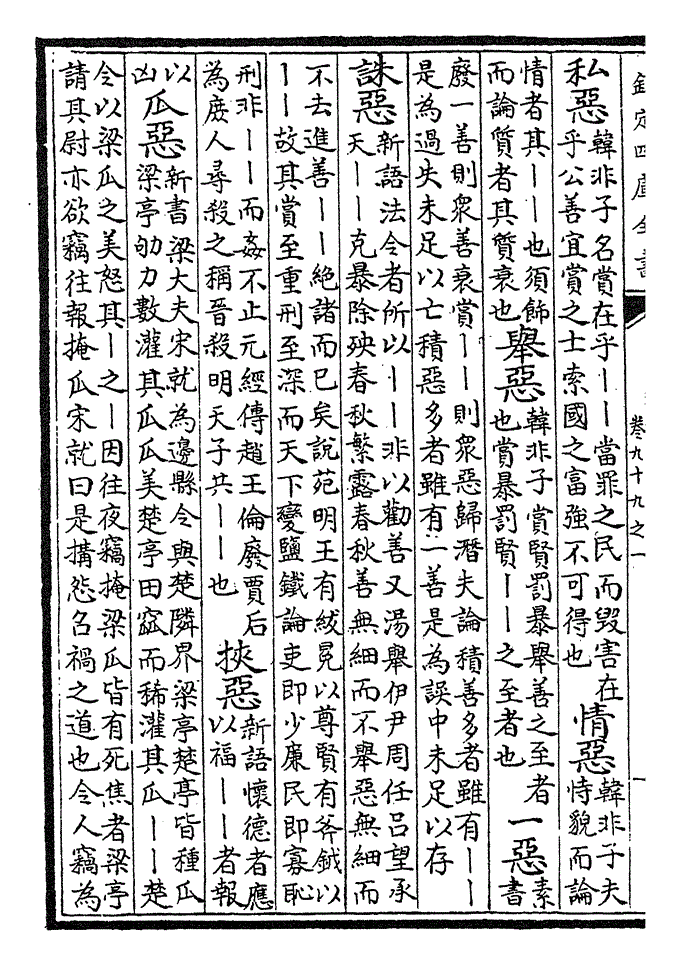 欽定四庫全書 卷九十九之一
私惡
韓非子名賞在乎丨丨當罪之民而毀害在
乎公善宜賞之士索國之富強不可得也
情惡
韓非子夫
恃貌而論
情者其丨丨也須飾
而論質者其質衰也
舉惡
韓非子賞賢罰暴舉善之至者
也賞暴罰賢丨丨之至者也
一惡
素
書
廢一善則衆善衰賞丨丨則衆惡歸潛夫論積善多者雖有丨丨
是為過失未足以亡積惡多者雖有一善是為誤中未足以存
誅惡
新語法令者所以丨丨非以勸善又湯舉伊尹周任呂望承
天丨丨克暴除殃春秋繁露春秋善無細而不舉惡無細而
不去進善丨丨絶諸而已矣說苑明王有紱冕以尊賢有斧鉞以
丨丨故其賞至重刑至深而天下變鹽鐵論吏即少廉民即寡恥
刑非丨丨而姦不止元經傳趙王倫廢賈后
為庻人尋殺之稱晉殺明天子共丨丨也
挾惡
新語懷德者應
以福丨丨者報
以
凶
瓜惡
新書梁大夫宋就為邊縣令與楚隣界梁亭楚亭皆種瓜
梁亭劬力數灌其瓜瓜美楚亭田窳而稀灌其瓜丨丨楚
令以梁瓜之美怒其丨之丨因往夜竊掩梁瓜皆有死焦者梁亭
請其尉亦欲竊往報掩瓜宋就曰是搆怨召禍之道也令人竊為